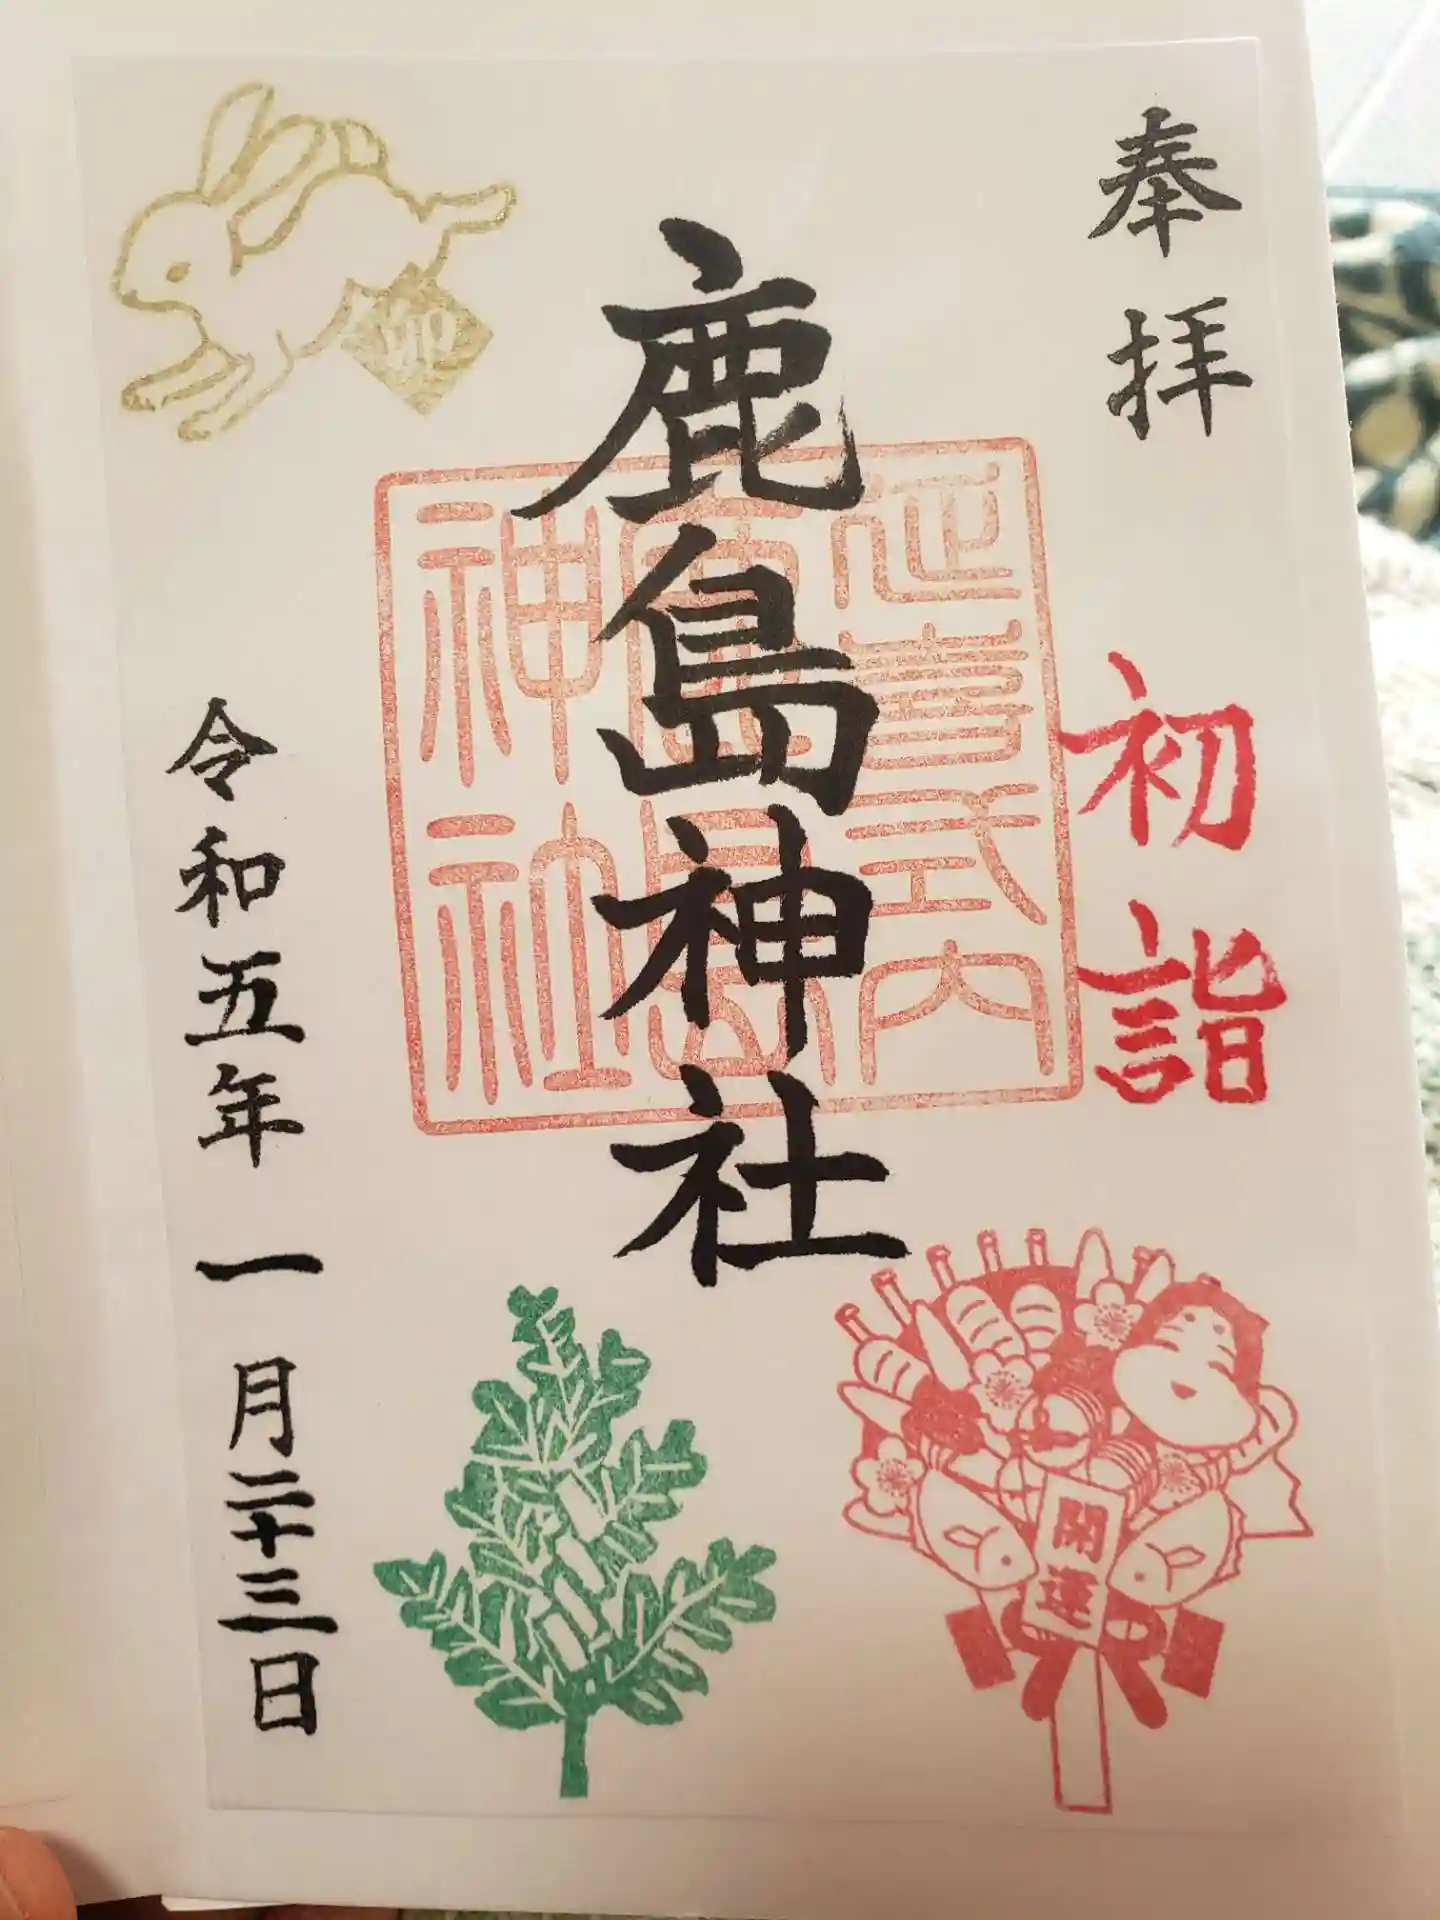 奉拝
初詣
鹿島神社
延喜式内
鹿島
神社
令和五年一月二十三日
卯
開運